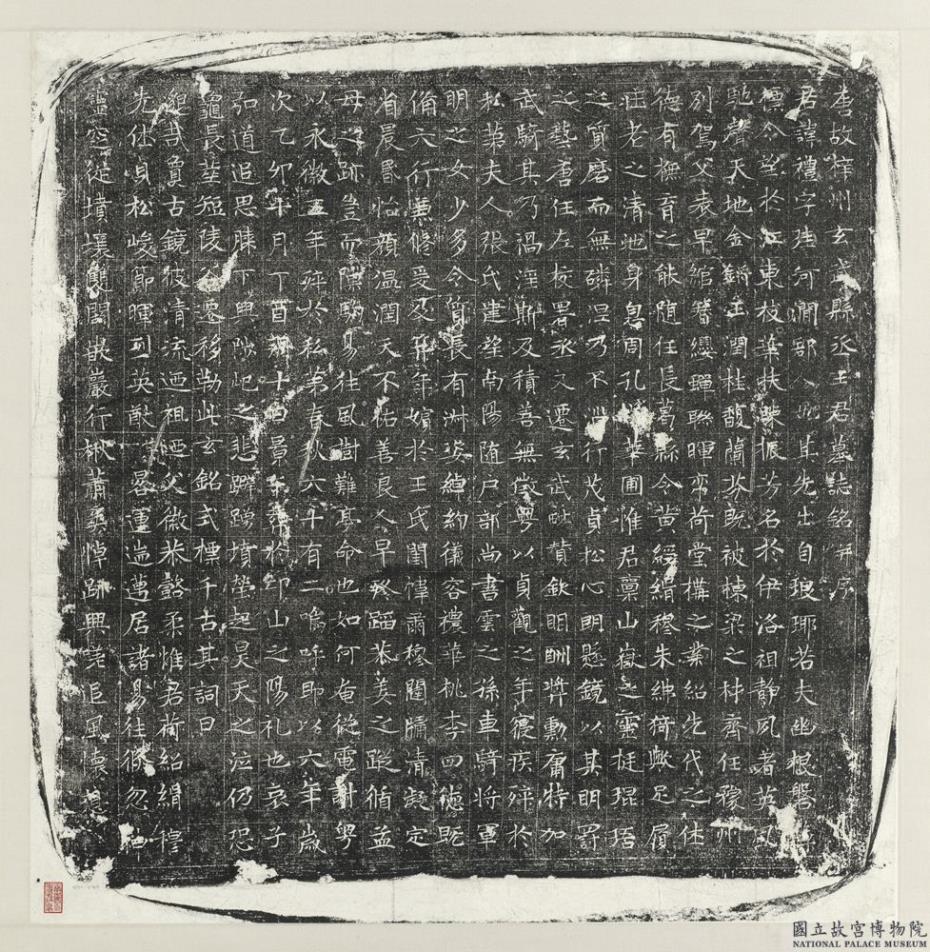 大唐故梓州玄武縣丞王君墓誌銘并序
君諱禮字 河澗郡人 其先出自琅瑘若夫幽根磐
令望於江東枝葉扶踈振芳名於伊洛祖靜夙著英風
馳聲天地金鏘玉潤桂馥蘭芬既被棟梁之材齊任稷州
別駕父表早綰簪纓蟬聯暉 荷堂構之業紹先代之休
德有撫育之能隨任長葛縣令黄綬緝穆朱紱猗歟足履
莊老之清 身息周孔 華圃惟君禀山嶽之靈挺琨珸
之質磨而無磷涅乃不 行茂貞松心明懸鏡以其明習
之藝唐任左校署丞又遷玄武 贊欽明酬奬勳庸特加
武騎其乃禍淫斯及積善無徵粤以貞觀之年寑疾殂於
私第夫人張氏建望南陽随户部尚書雲之孫車騎將軍
明之女少多令質長有淑姿綽約儀容穠華桃李四德既
脩六行 修爰及 年嬪於王氏閨禕肅穆閫牖清凝定
省晨昏怡顔温潤天不祐善良人早終踏恭姜之蹤循孟
母之跡豈而隟駒易往風樹難亭命也如何奄從電謝粤
以永徽五年殂於私第春秋六十有二嗚呼即以六年歲
次乙卯 月丁酉朔十 日景 葬於邙山之陽礼也哀子
弘道追思 下興 屺之悲擗踴墳塋起昊天之泣仍恐
龜長筮短陵谷遷移勒此玄銘式標千古其詞曰
負古鏡彼清流迺祖迺父徽恭懿柔惟君荷紹緝穆
先 貞松峻節暉 英猷 晷運遄遵居諸易往 忽
靈空從墳壤雙闕嵌巖行楸蕭 悼跡興 追風懷
國立故宮博物院
NATIONAL PALACE MUSEUM